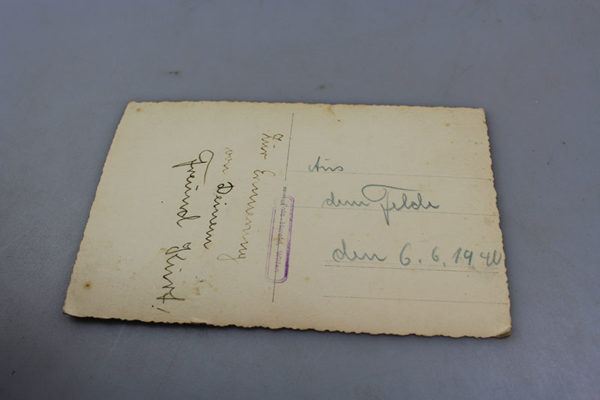 Zur Erinnerung
von Deinem
Freund Kurt!
Aus
dem Felde
den 6.6.1940